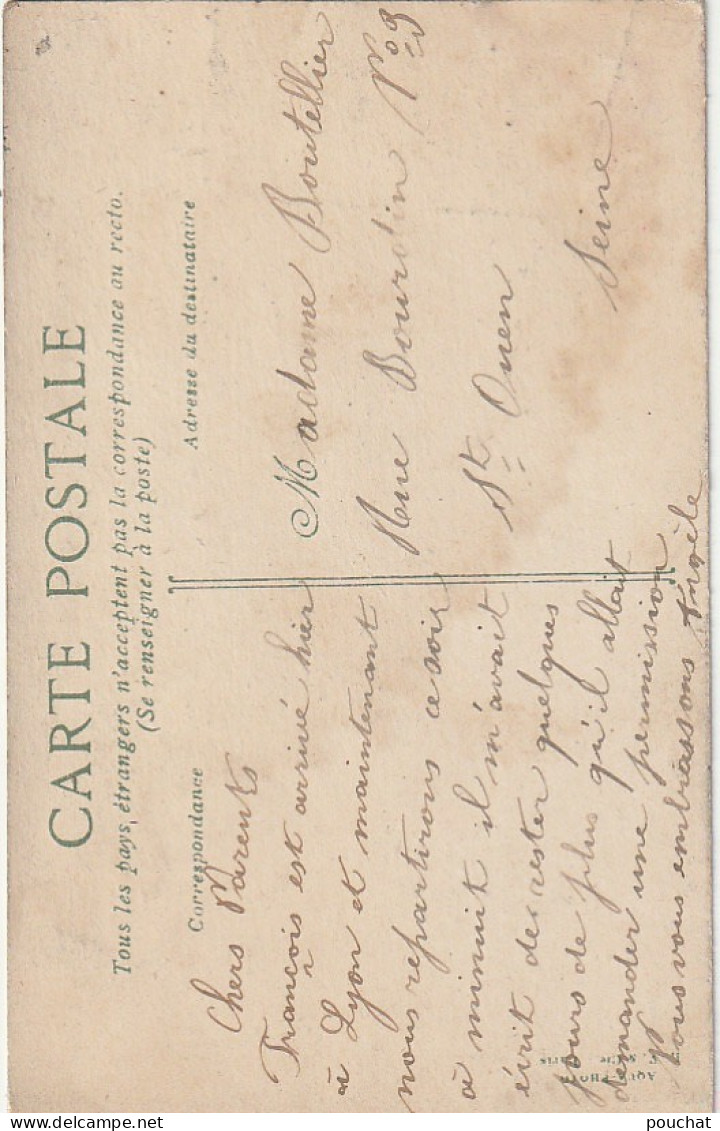 CARTE POSTALE
Tous les pays, étrangers n'acceptent pas la correspondance au recto.
(Se renseigner à la poste)
Correspondance
Chers Parents
François est arrivé hier
à Lyon et maintenant
nous repartirons ce soir
à minuit il m'avait
écrit de rester quelques
jours de plus qu'il allait
demander une permission
Nous vous embrassons
Adresse du destinataire
Madame Boutellier
Rue Bourdin No 8
St. Ouen
Seine
AQUA-PHOTO
pouchat
delcampe.net